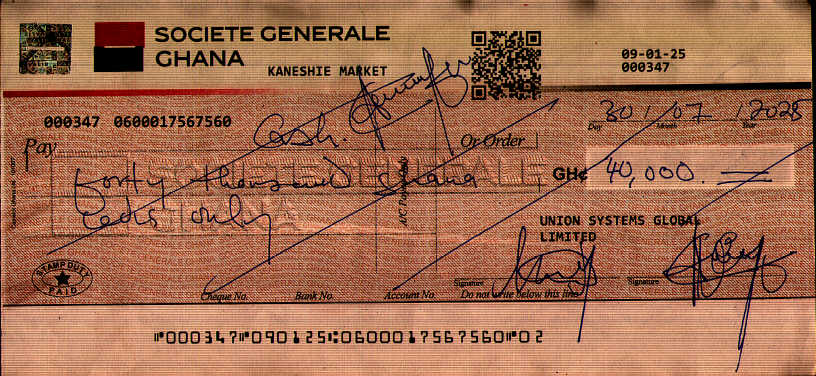 SOCIETE GENERALE
GHANA
KANESHIE MARKET
09-01-25
000347
000347 0600017567560
30 / 07 / 2025
Day Month Year
Pay Cash. Or Order
SOCIETE GENERALE
Forty thousand ghana GH¢ 40,000.
cedis only
A/C Payee Only
UNION SYSTEMS GLOBAL
LIMITED
STAMP DUTY
PAID
Signature Signature
Cheque No. Bank No. Account No. Do not write below this line
⑈000347⑈090125⑆0600017567560⑈02